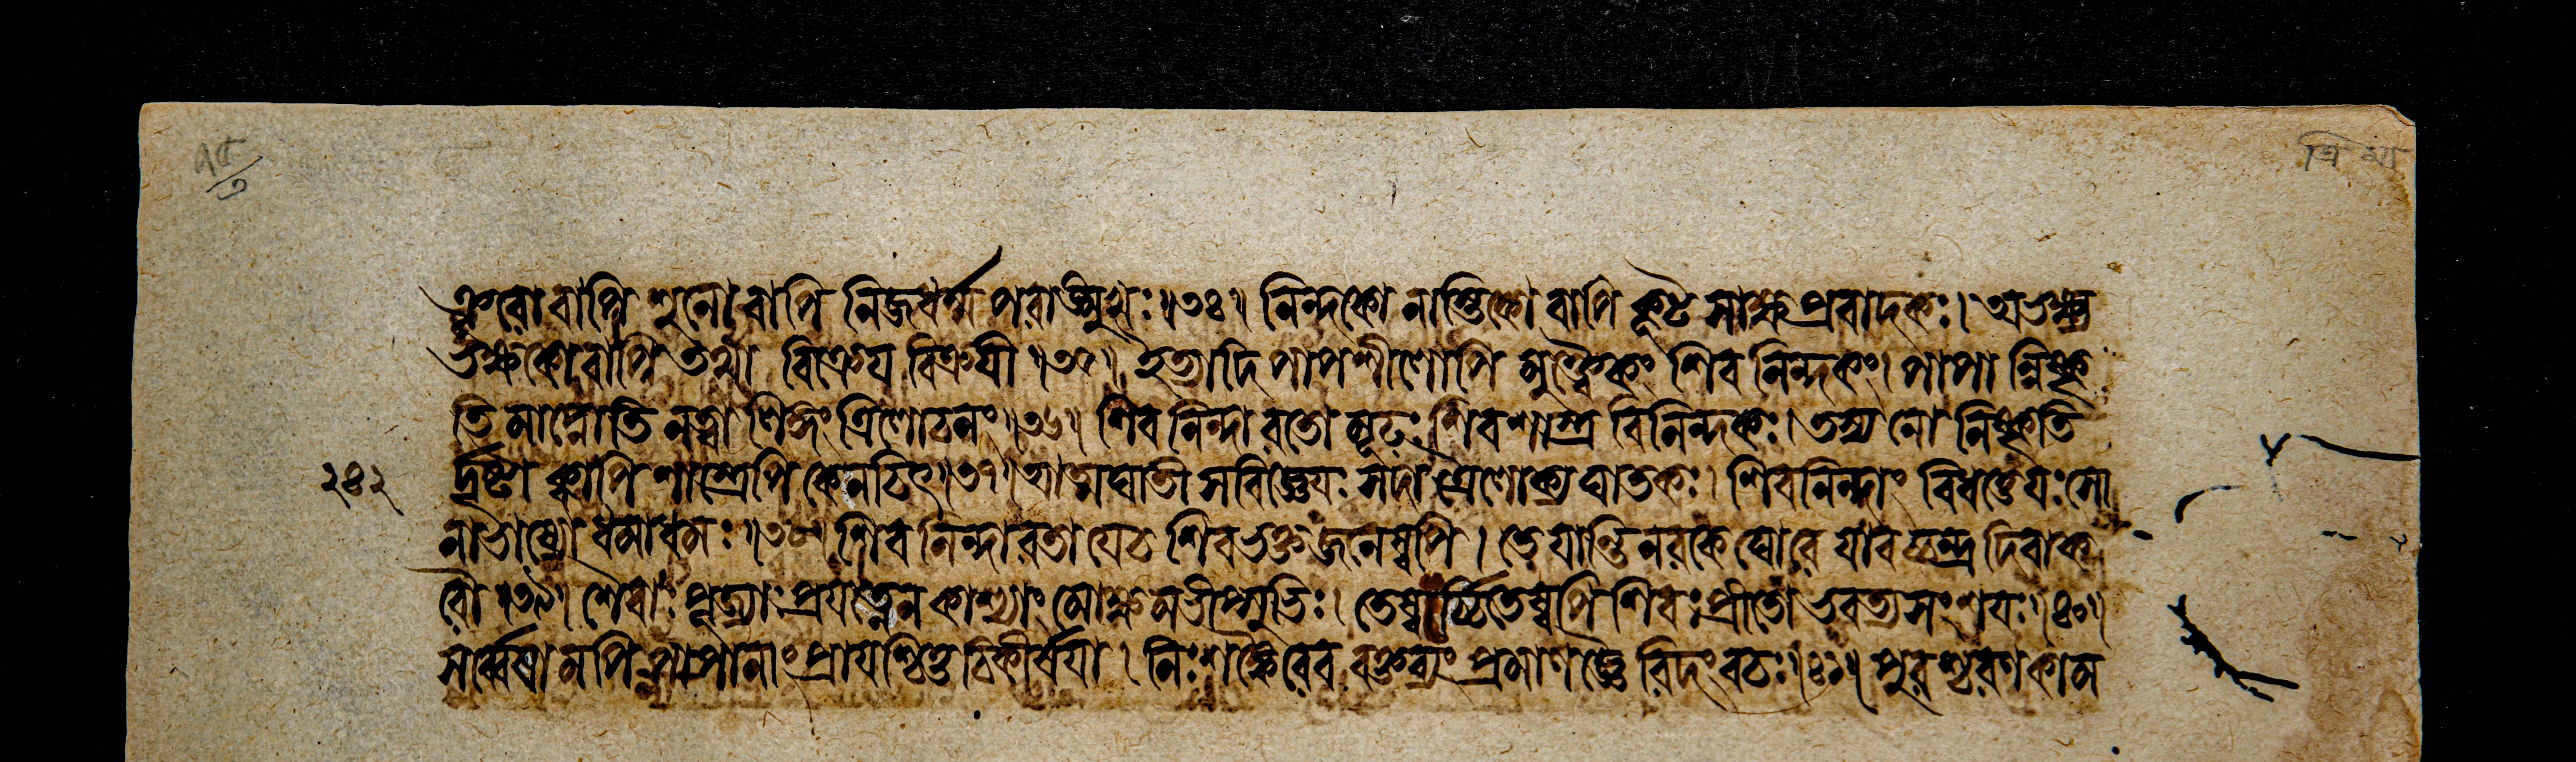 ৭৫/৩
ত্রি মা
ক্রূরো বাপি শুনো বাপি নিজধর্ম্মপরাঙ্মুখঃ॥৩৪॥ নিন্দকো নাস্তিকো বাপি কূটসাক্ষ্যপ্রবাদকঃ। অভক্ষ্য
ভক্ষকো বাপি তথা বিক্রেয়বিক্রয়ী॥৩৫॥ ইত্যাদিপাপশীলোপি মুক্ত্বৈকং শিবনিন্দকং। পাপান্নিষ্কৃ
তিমাপ্নোতি নত্বা লিঙ্গং ত্রিলোচনং॥৩৬॥ শিবনিন্দারতো মূঢ়ঃ শিবশাস্ত্রবিনিন্দকঃ। তস্য নো নিষ্কৃতি
২৪২
র্দৃষ্টা ক্বাপি শাস্ত্রেপি কেনচিৎ॥৩৭॥ আত্মঘাতী স বিজ্ঞেয়ঃ সদা ত্রৈলোক্যঘাতকঃ। শিবনিন্দাং বিধত্তে যঃ সো
নাভাষ্যো ধমাধমঃ॥৩৮॥ শিবনিন্দারতা যে চ শিবভক্তজনেষ্বপি। তে যান্তি নরকে ঘোরে যাবচ্চন্দ্রদিবাক
রৌ॥৩৯॥ শৈবাঃ পূজ্যাঃ প্রযত্নেন কাশ্যাং মোক্ষমভীপ্সুভিঃ। তেষ্বর্চ্চিতেষ্বপি শিবঃ প্রীতো ভবত্যসংশয়ঃ॥৪০॥
সর্ব্বেষামপি পাপানাং প্রায়শ্চিত্তচিকীর্ষয়া। নিঃশঙ্কৈরেব বক্তব্যং প্রমাণজ্ঞৈরিদং বচঃ॥৪১॥ পুরশ্চরণকাম